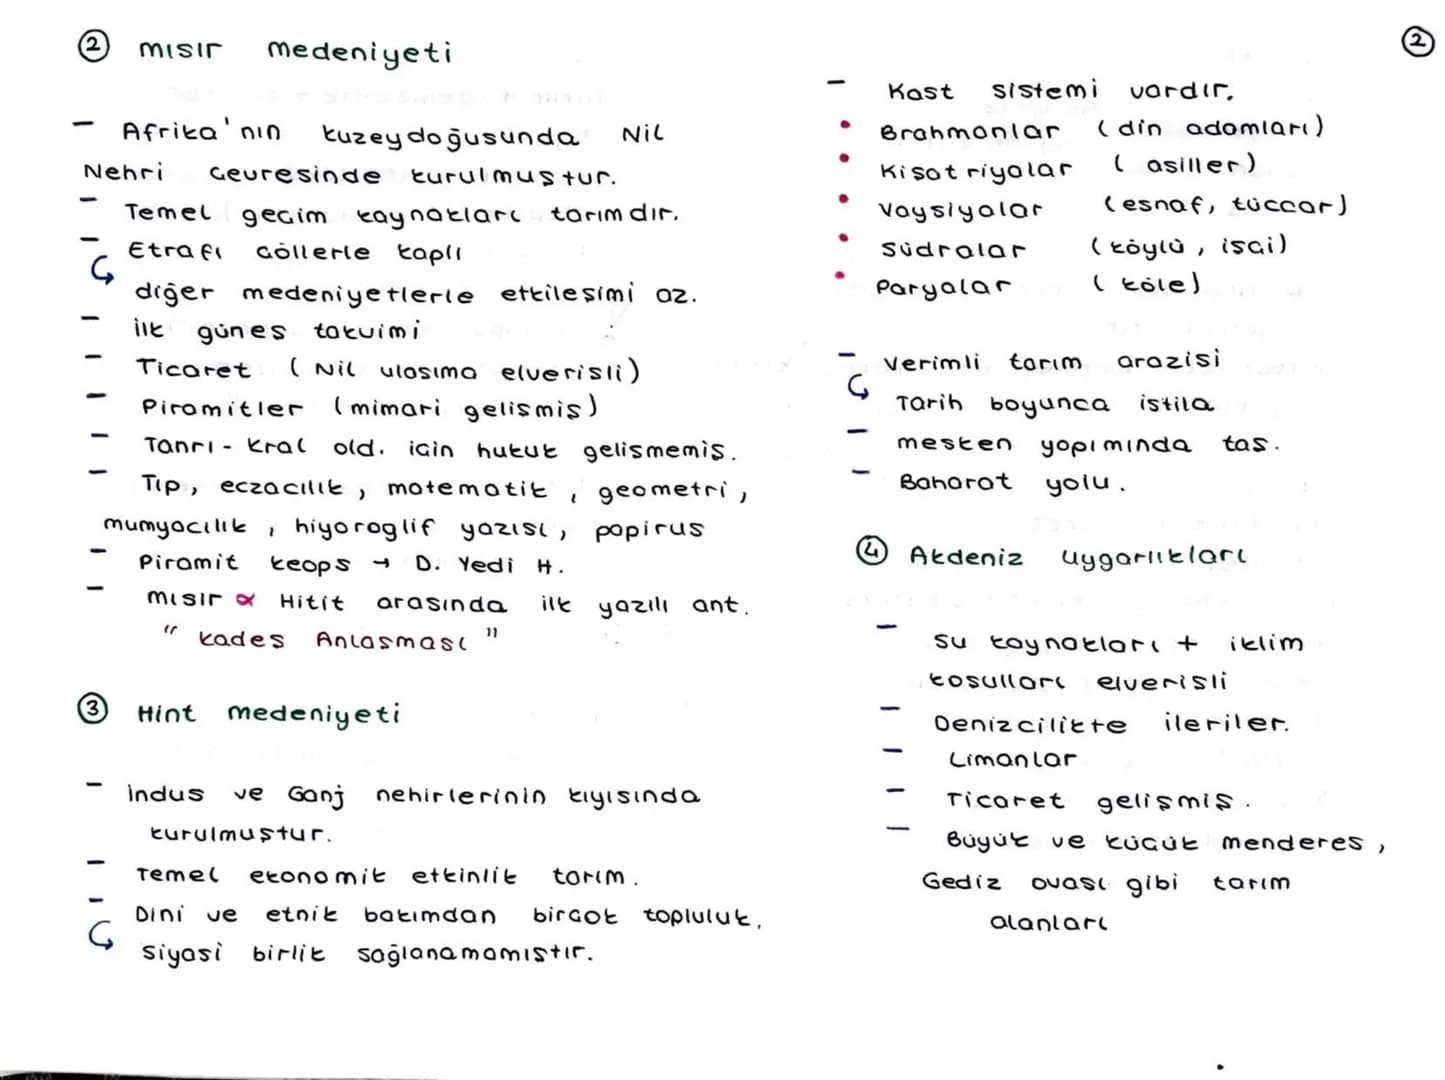 ② mısır medeniyeti
- Afrika'nın kuzeydoğusunda Nil
Nehri çevresinde kurulmuştur.
- Temel geçim kaynakları tarımdır.
- Etrafı çöllerle kaplı
diğer medeniyetlerle etkileşimi az.
- ilk güneş takvimi
- Ticaret ( Nil ulaşıma elverişli)
- Piramitler (mimari gelişmiş)
- Tanrı - kral old. için hukuk gelişmemiş.
- Tıp, eczacılık, matematik, geometri,
mumyacılık, hiyoroglif yazısı, papirus
- Piramit keops → D. Yedi H.
- mısır ∝ Hitit arasında ilk yazılı ant.
"kadeş Anlaşması"
③ Hint medeniyeti
- indus ve Ganj nehirlerinin kıyısında
kurulmuştur.
- Temel ekonomik etkinlik tarım.
- Dini ve etnik bakımdan birçok topluluk,
siyasi birlik sağlanamamıştır.
②
- Kast sistemi vardır.
• Brahmanlar (din adamları)
• Kişatriyalar ( asiller)
• Vaysiyalar (esnaf, tüccar)
• Südralar ( köylü, işçi)
• Paryalar ( köle)
- Verimli tarım arazisi
Tarih boyunca istila
- mesken yapımında taş.
- Baharat yolu.
④ Akdeniz uygarlıkları
- su kaynakları + iklim
koşulları elverişli
- Denizcilikte ileriler.
- Limanlar
- Ticaret gelişmiş.
- Büyük ve küçük menderes,
Gediz ovası gibi tarım
alanları